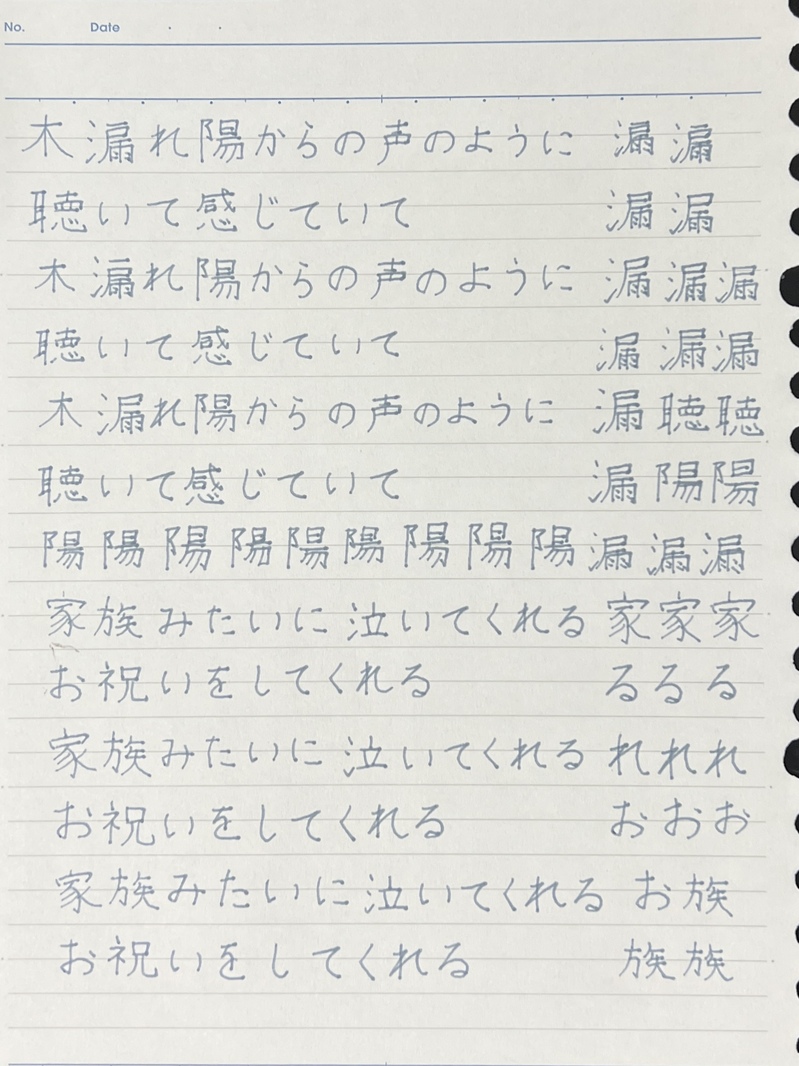 No. Date
木漏れ陽からの声のように 漏漏
聴いて感じていて 漏漏
木漏れ陽からの声のように 漏漏漏
聴いて感じていて 漏漏漏
木漏れ陽からの声のように 漏聴聴
聴いて感じていて 漏陽陽
陽陽陽陽陽陽陽陽陽漏漏漏
家族みたいに泣いてくれる 家家家
お祝いをしてくれる るるる
家族みたいに泣いてくれる れれれ
お祝いをしてくれる おおお
家族みたいに泣いてくれる お族
お祝いをしてくれる 族族